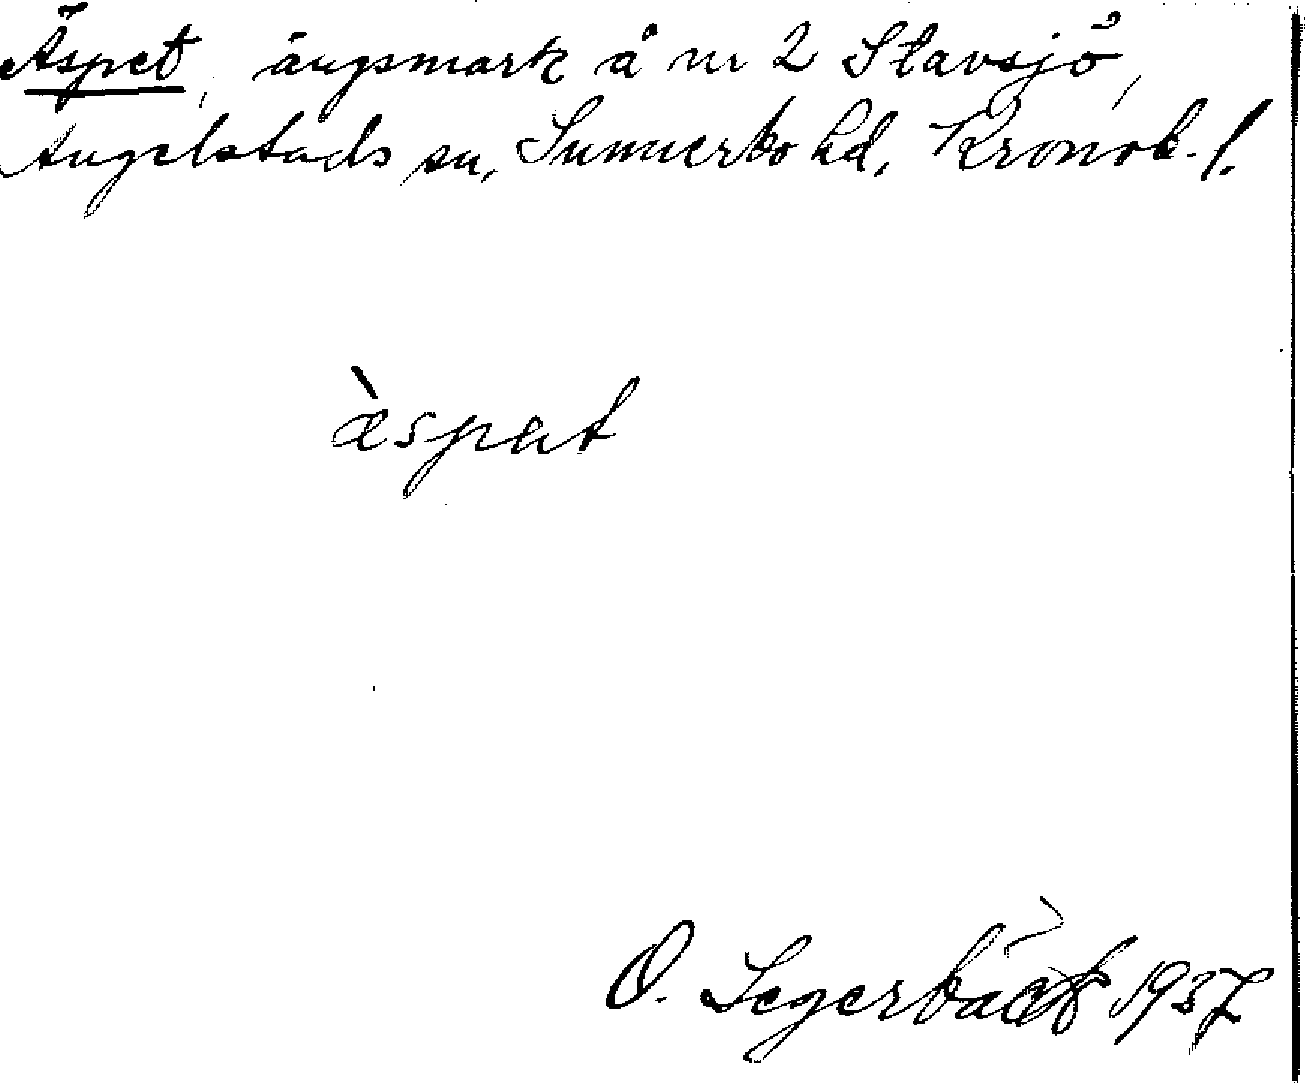 Äspet, ängsmark å nr 2 Stavsjö,
Angelstads sn, Sunnerbo hd, Kronob. l.
æ̀spat
O. Segerbäck 1937